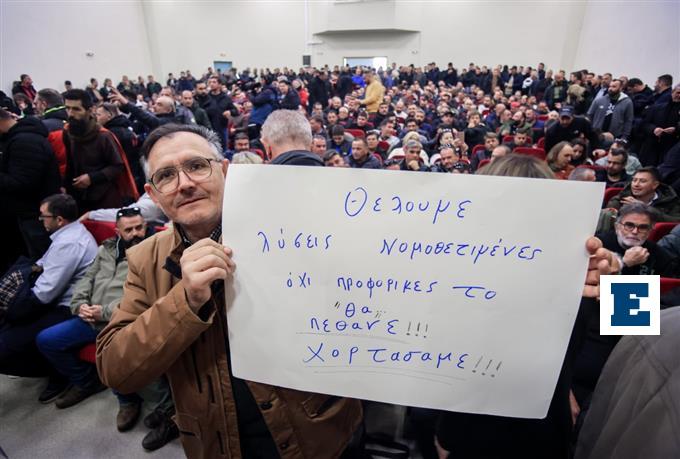 Θελουμε
λύσεις νομοθετιμένες
όχι προφορικες το
"θα"
πεθανε!!!
Χορτασαμε!!!
E